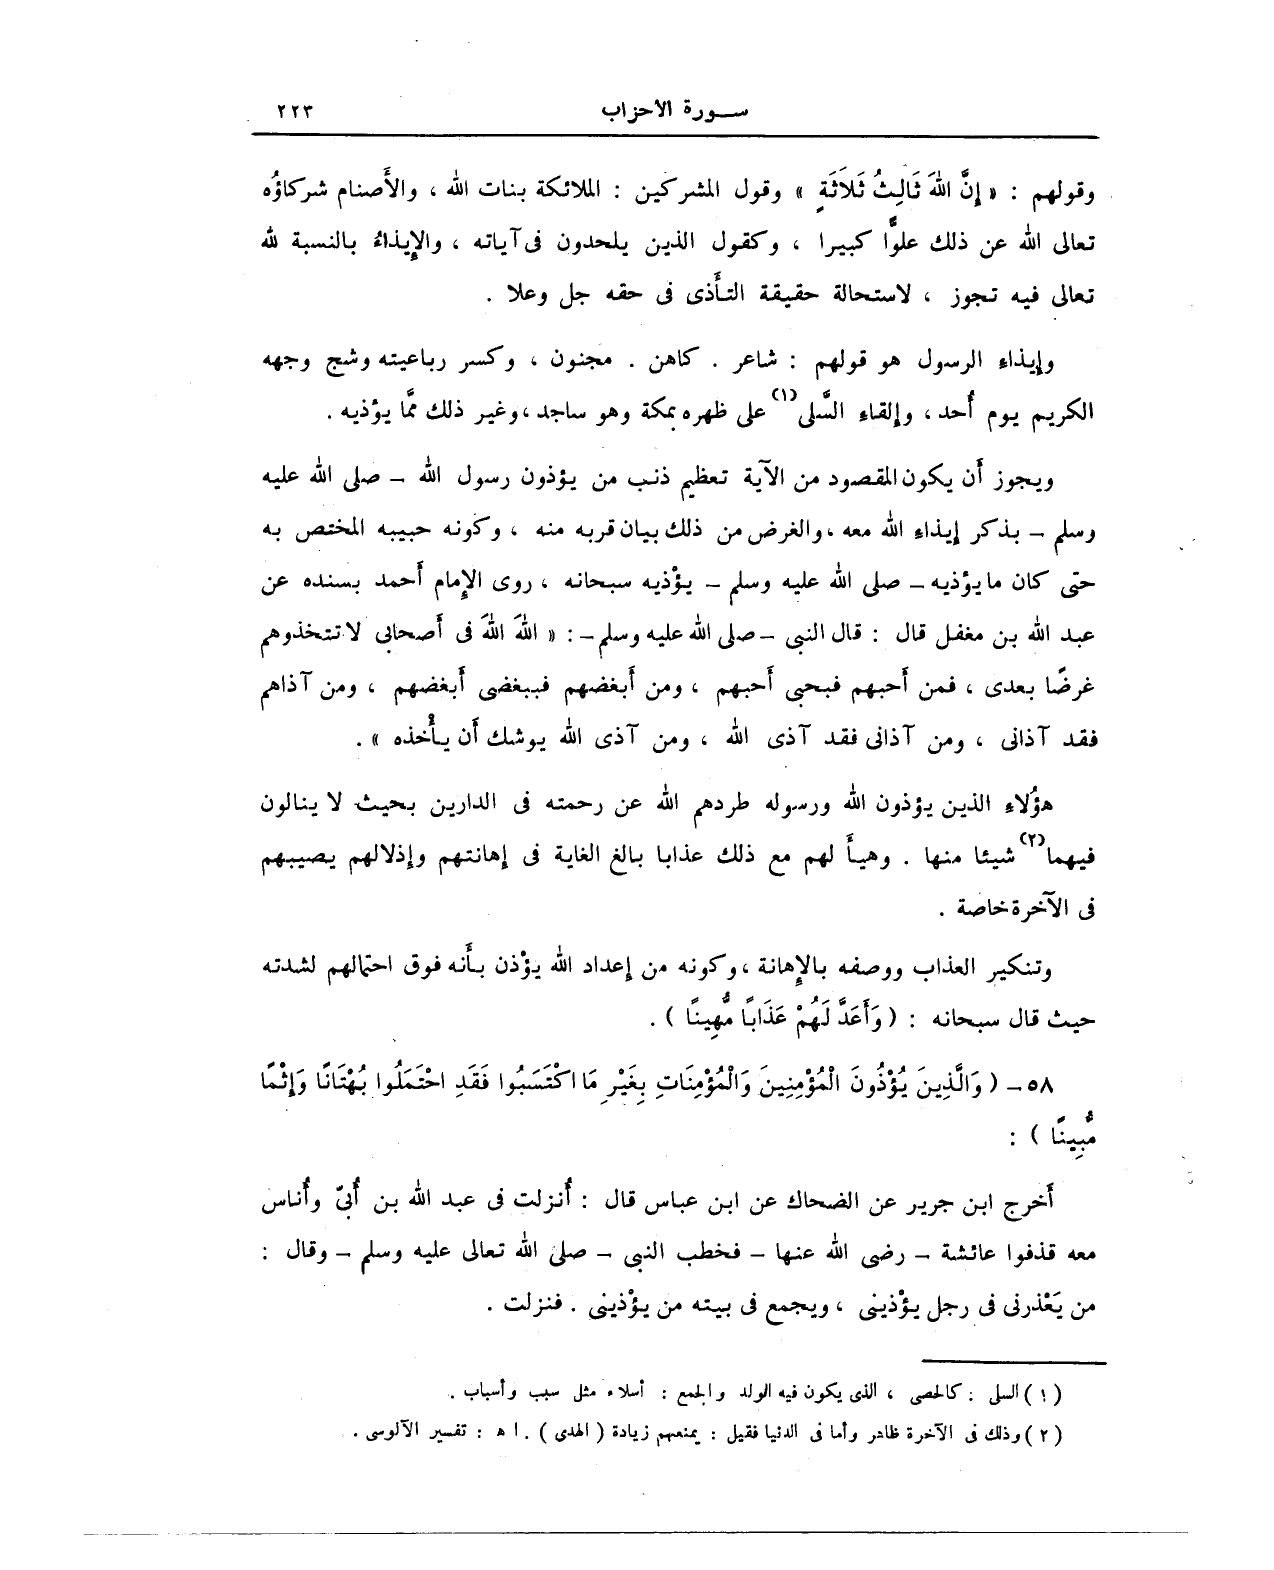 سورة الأحزاب ٢٢٣
وقولهم : « إِنَّ اللهَ ثَالِثُ ثَلَاثَةٍ » وقول المشركين : الملائكة بنات الله ، والأَصنام شركاؤُه
تعالى الله عن ذلك علوًّا كبيرا ، وكقول الذين يلحدون فى آياته ، والإِيذاءُ بالنسبة لله
تعالى فيه تجوز ، لاستحالة حقيقة التأَذى فى حقه جل وعلا .
وإِيذاء الرسول هو قولهم : شاعر . كاهن . مجنون ، وكسر رباعيته وشج وجهه
الكريم يوم أُحد ، وإِلقاء السَّلى(١) على ظهره بمكة وهو ساجد ، وغير ذلك ممَّا يؤذيه .
ويجوز أَن يكون المقصود من الآية تعظيم ذنب من يؤذون رسول الله – صلى الله عليه
وسلم – بذكر إِيذاء الله معه ، والغرض من ذلك بيان قربه منه ، وكونه حبيبه المختص به
حتى كان ما يؤذيه – صلى الله عليه وسلم – يؤْذيه سبحانه ، روى الإِمام أَحمد بسنده عن
عبد الله بن مغفل قال : قال النبى – صلى الله عليه وسلم – : « اللهَ اللهَ فى أَصحابى لا تتخذوهم
غرضًا بعدى ، فمن أَحبهم فبحبى أَحبهم ، ومن أَبغضهم فببغضى أَبغضهم ، ومن آذاهم
فقد آذانى ، ومن آذانى فقد آذى الله ، ومن آذى الله يوشك أَن يأْخذه » .
هؤُلاءِ الذين يؤذون الله ورسوله طردهم الله عن رحمته فى الدارين بحيث لا ينالون
فيهما(٢) شيئا منها . وهيأَ لهم مع ذلك عذابا بالغ الغاية فى إِهانتهم وإِذلالهم يصيبهم
فى الآخرة خاصة .
وتنكير العذاب ووصفه بالإِهانة ، وكونه من إِعداد الله يؤْذن بأَنه فوق احتمالهم لشدته
حيث قال سبحانه : ( وَأَعَدَّ لَهُمْ عَذَابًا مُّهِينًا ) .
٥٨ – ( وَالَّذِينَ يُؤْذُونَ الْمُؤْمِنِينَ وَالْمُؤْمِنَاتِ بِغَيْرِ مَا اكْتَسَبُوا فَقَدِ احْتَمَلُوا بُهْتَانًا وَإِثْمًا
مُّبِينًا ) :
أَخرج ابن جرير عن الضحاك عن ابن عباس قال : أُنزلت فى عبد الله بن أُبىّ وأُناس
معه قذفوا عائشة – رضى الله عنها – فخطب النبى – صلى الله تعالى عليه وسلم – وقال :
من يَعْذرنى فى رجل يؤْذينى ، ويجمع فى بيته من يؤْذينى . فنزلت .
( ١ ) السلى : كالحصى ، الذى يكون فيه الولد والجمع : أسلاء مثل سبب وأسباب .
( ٢ ) وذلك فى الآخرة ظاهر وأما فى الدنيا فقيل : يمنعهم زيادة ( الهدى ) . ا ه : تفسير الآلوسى .